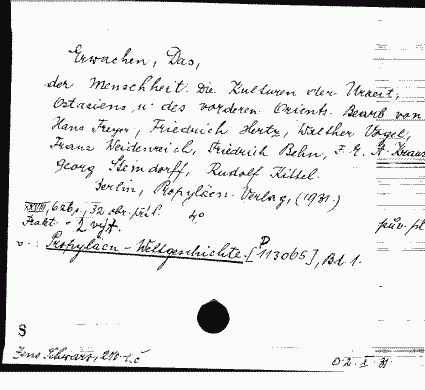 Erwachen, Das,
der Menschheit. Die Kulturen der Urzeit,
Ostasiens u. des vorderen Orients. Bearb. von
Hans Freyer, Friedrich Hertz, Walther Vogel,
Franz Weidenreich, Friedrich Behn, F. E. A. Krause
Georg Steindorff, Rudolf Kittel.
Berlin, Propyläen-Verlag, (1931.)
XXVIII, 626 s., 32 obr. příl. 4°
Frakt. - 2 výt. pův. pl
v : Propyläen-Weltgeschichte. [P 113065], Bd. 1.
S